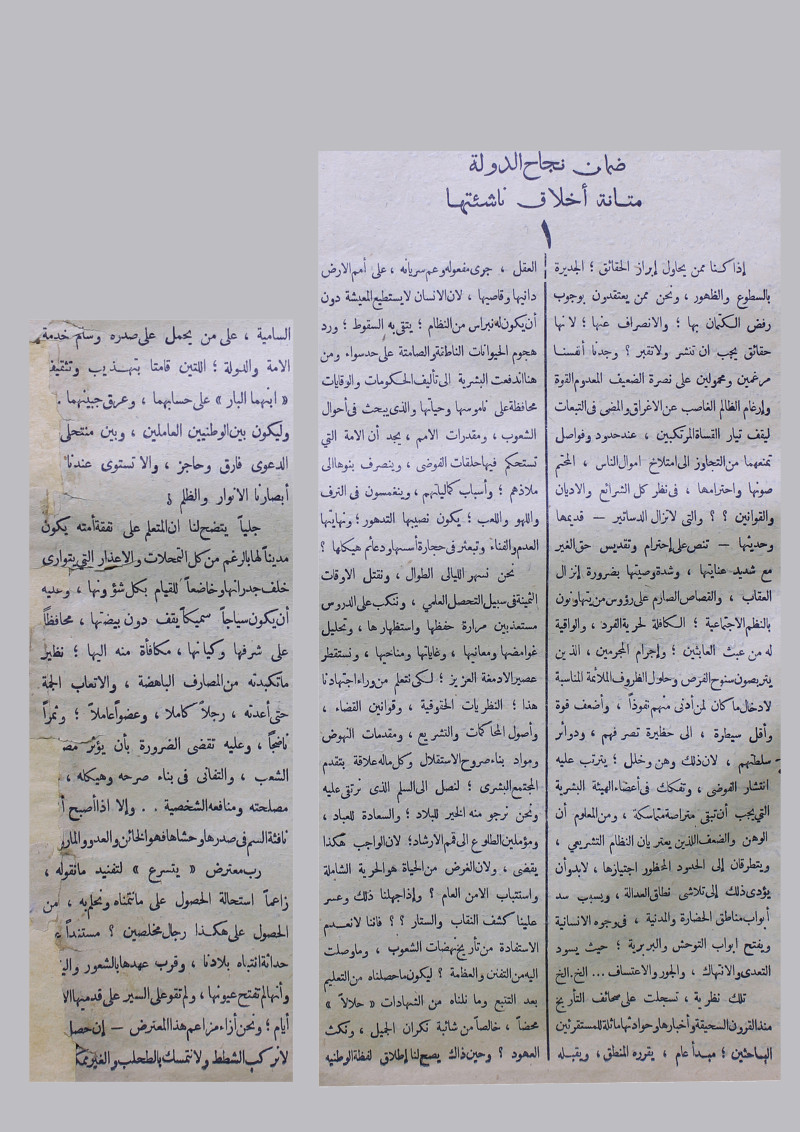 ضمان نجاح الدولة
متانة أخلاق ناشئتها
١
إذا كنا ممن يحاول إبراز الحقائق ؛ الجديرة
بالسطوع والظهور ، ونحن ممن يعتقدون بوجوب
رفض الكتمان بها ؛ والانصراف عنها ؛ لانها
حقائق يجب ان تنشر ولا تقبر ؟ وجدنا أنفسنا
مرغمين ومحمولين على نصرة الضعيف المعدوم القوة
وإرغام الظالم الغاصب عن الاغراق والمضى فى التبعات
ليقف تيار القساة المرتكبين ، عند حدود وفواصل
تمنعهما من التجاوز الى امتلاخ اموال الناس ، المحتم
صونها واحترامها ، فى نظر كل الشرائع والاديان
والقوانين ؟ ؟ والتى لا تزال الدساتير — قديمها
وحديثها — تنص على إحترام وتقديس حق الغير
مع شديد عنايتها ، وشدة وصيتها بضرورة إنزال
العقاب ، والقصاص الصارم على رؤوس من يتهاونون
بالنظم الاجتماعية ؛ الكافلة لحرية الفرد ، والواقية
له من عبث العابثين ؛ وإجرام المجرمين ، الذين
يتربصون سنوح الفرص وحلول الظروف الملائمة المناسبة
لادخال ما كان لمن أدنى منهم نفوذاً ، وأضعف قوة
وأقل سيطرة ، الى حظيرة تصرفهم ، ودوائر
سلطتهم ، لان ذلك وهن وخلل ؛ يترتب عليه
انتشار الفوضى ، وتفكك فى أعضاء الهيئة البشرية
التى يجب أن تبقى متراصة متماسكة ، ومن المعلوم أن
الوهن والضعف اللذين يعتريان النظام التشريعى ،
ويتطرقان إلى الحدود المحظور اجتيازها ، لا بد وأن
يؤدى ذلك إلى تلاشى نطاق العدالة ، ويسبب سد
أبواب مناطق الحضارة والمدنية ، فى وجوه الانسانية
ويفتح ابواب التوحش والبربرية ؛ حيث يسود
التعدى والانتهاك ، والجور والاعتساف ... الخ.الخ
تلك نظرية ، تسجلت على صحائف التأريخ
منذ القرون السحيقة وأخبارها وحوادثها ماثلة للمستقرئين
الباحثين ؛ مبدأ عام ، يقرره المنطق ، ويقبله
العقل ، جرى مفعوله وعم سريانه ، على أمم الارض
دانيها وقاصيها ، لان الانسان لا يستطيع المعيشة دون
أن يكون له نبراس من النظام ؛ يتقى به السقوط ؛ ورد
هجوم الحيوانات الناطقة والصامتة على حد سواء ومن
هنا اندفعت البشرية الى تأليف الحكومات والوقايات
محافظة على ناموسها وحياتها والذى يبحث فى أحوال
الشعوب ، ومقدرات الامم ، يجد أن الامة التى
تستحكم فيها حلقات الفوضى ، وينصرف بنوها الى
ملاذهم ؛ وأسباب كمالياتهم ، وينغمسون فى الترف
واللهو واللعب ؛ يكون نصيبها التدهور ؛ ونهايتها
العدم والفناء وتبعثر فى حجارة أسسها ودعائم هيكلها ؟
نحن نسهر الليالى الطوال ، ونقتل الاوقات
الثمينة فى سبيل التحصل العلمي ، وننكب على الدروس
مستعذبين مرارة حفظها واستظهارها ، وتحليل
غوامضها ومعانيها ، وغاياتها ومناحيها ، ونستقطر
عصير الادمغة العزيز ؛ لكى نتعلم من وراء اجتهادنا
هذا ؛ النظريات الحقوقية ، وقوانين القضاء ،
وأصول المحاكمات والتشريع ، ومقدمات النهوض
ومواد بناء صروح الاستقلال وكل ماله علاقة بتقدم
المجتمع البشرى ؛ لنصل الى السلم الذى نرتقى عليه
ونحن نرجو منه الخير للبلاد ؛ والسعادة للعباد ،
ومؤملين الطلوع الى قمم الارشاد ؛ لان الواجب هكذا
يقضى ، ولان الغرض من الحياة هو الحرية الشاملة
واستتباب الامن العام ؟ وإذا جهلنا ذلك وعسر
علينا كشف النقاب والستار ؟ ؟ فاننا لا نعدم
الاستفادة من تأريخ نهضات الشعوب ، وما وصلت
اليه من التفنن والعظمة ؟ ليكون ما حصلناه من التعليم
بعد التتبع وما نلناه من الشهادات « حلالاً »
محضاً ، خالصاً من شائبة نكران الجميل ، ونكث
العهود ؟ وحين ذاك يصح لنا إطلاق لفظة الوطنيه
السامية ، على من يحمل على صدره وسام خدمة
الامة والدولة ؛ اللتين قامتا بتهذيب وتثقيف
« ابنهما البار » على حسابهما ، وعرق جبينهما ،
وليكون بين الوطنيين العاملين ، وبين منتحلى
الدعوى فارق وحاجز ، والا تستوى عندنا
أبصارنا الانوار والظلم ؟
جلياً يتضح لنا ان المتعلم على نفقة أمته يكون
مديناً لها بالرغم من كل التمحلات والاعذار التى يتوارى
خلف جدرانها وخاضعاً للقيام بكل شؤونها ، وعليه
أن يكون سياجاً سميكاً يقف دون بيضتها ، محافظاً
على شرفها وكيانها ، مكافأة منه اليها ؛ نظير
ما تكبدته من المصارف الباهضة ، والاتعاب الجمة
حتى أعدته ، رجلاً كاملا ، وعضواً عاملاً ؛ وثمراً
ناضجاً ، وعليه تقضى الضرورة بأن يؤثر
الشعب ، والتفانى فى بناء صرحه وهيكله ،
مصلحته ومنافعه الشخصية . . وإلا اذا أصبح
نافثة السم فى صدرها وحشاها فهو الخائن والعدو
رب معترض « يتسرع » لتفنيد ما نقوله ،
زاعماً استحالة الحصول على ما نتمناه ونحلم به ، من
الحصول على هكذا رجل مخلصين ؟ مستنداً
حداثة انتباه بلادنا ، وقرب عهدها بالشعور
وأنها لم تفتح عيونها ، ولم تقو على السير على قدميها
أيام ؛ ونحن أزاء مزاعم هذا المعترض — إن حصل
لا نركب الشطط ولا نتمسك بالطحلب والغير